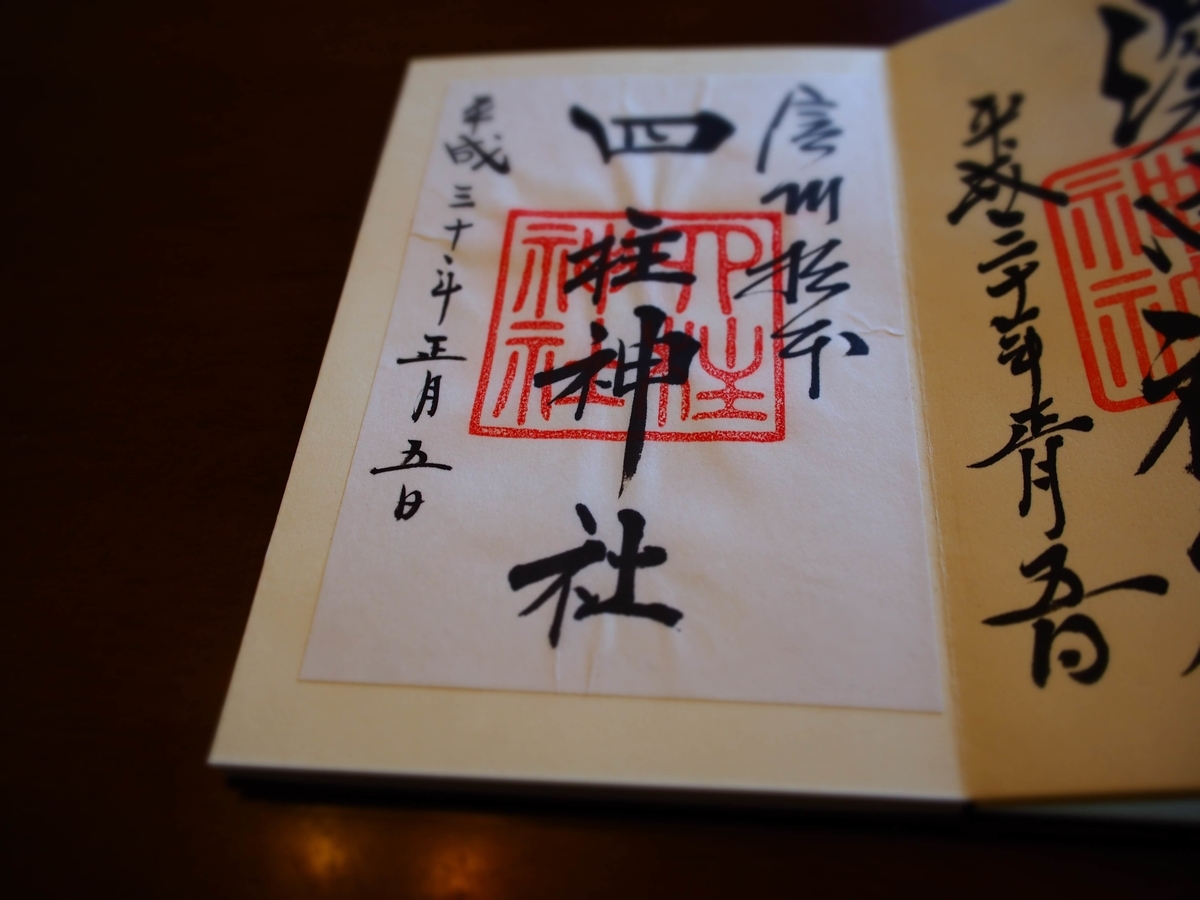 信州松本
四柱神社
四柱神社
平成三十年正月五日
深志神社
平成三十年正月五日